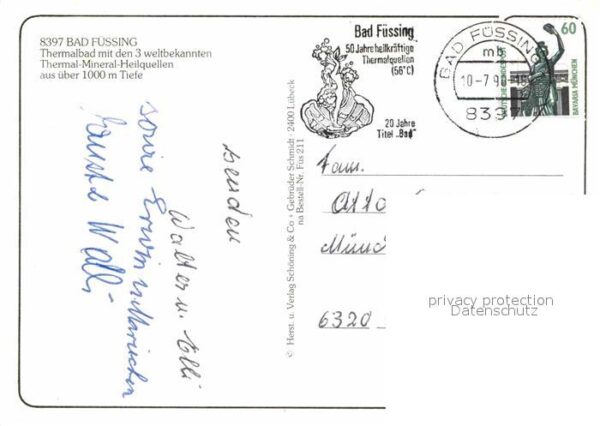 8397 BAD FÜSSING
Thermalbad mit den 3 weltbekannten
Thermal-Mineral-Heilquellen
aus über 1000 m Tiefe
Bad Füssing
50 Jahre heilkräftige
Thermalquellen
(56°C)
20 Jahre
Titel „Bad"
BAD FÜSSING
mb
10-7.90-18
8397
60
DEUTSCHE BUNDESPOST
BAVARIA MÜNCHEN
© Herst. u. Verlag Schöning & Co + Gebrüder Schmidt · 2400 Lübeck
na Bestell-Nr. Füs 211
senden
Walter u. Elli
sowie Erwin
Fam.
Otto
Münc
6320
privacy protection
Datenschutz